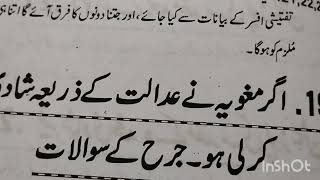 تفتیشی افسر کے بیانات سے کیا جائے، اور جتنا دونوں کا فرق آئے گا اتنا ہی
ملزم کو ہوگا۔
اگر مغویہ نے عدالت کے ذریعہ شادی
کرلی ہو۔ جرح کے سوالات
InShOt